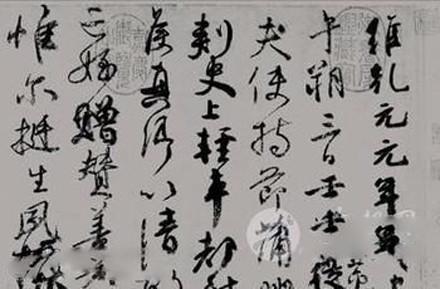 維乾元元年歲
午朔三日壬申從
夫使持節蒲
刺史上輕車都
侯真卿以清
亡姪贈贊善大
惟爾挺生夙標